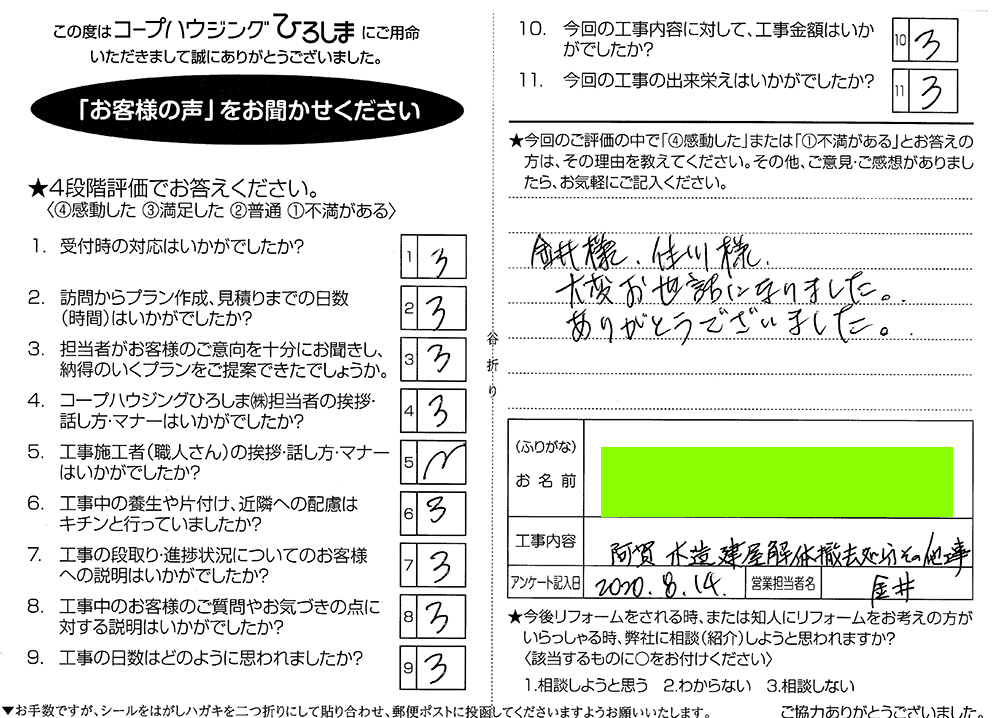 この度はコープハウジングひろしまにご用命
いただきまして誠にありがとうございました。
「お客様の声」をお聞かせください
★4段階評価でお答えください。
〈④感動した ③満足した ②普通 ①不満がある〉
1. 受付時の対応はいかがでしたか?
1 3
2. 訪問からプラン作成、見積りまでの日数
(時間)はいかがでしたか?
2 3
3. 担当者がお客様のご意向を十分にお聞きし、
納得のいくプランをご提案できたでしょうか。
3 3
4. コープハウジングひろしま㈱担当者の挨拶・
話し方・マナーはいかがでしたか?
4 3
5. 工事施工者(職人さん)の挨拶・話し方・マナー
はいかがでしたか?
5
6. 工事中の養生や片付け、近隣への配慮は
キチンと行っていましたか?
6 3
7. 工事の段取り・進捗状況についてのお客様
への説明はいかがでしたか?
7 3
8. 工事中のお客様のご質問やお気づきの点に
対する説明はいかがでしたか?
8 3
9. 工事の日数はどのように思われましたか?
9 3
▼お手数ですが、シールをはがしハガキを二つ折りにして貼り合わせ、郵便ポストに投函してくださいますようお願いいたします。
谷折り
10. 今回の工事内容に対して、工事金額はいか
がでしたか?
10 3
11. 今回の工事の出来栄えはいかがでしたか?
11 3
★今回のご評価の中で「④感動した」または「①不満がある」とお答えの
方は、その理由を教えてください。その他、ご意見・ご感想がありまし
たら、お気軽にご記入ください。
金井様、佳川様、
大変お世話になりました。
ありがとうございました。
(ふりがな)
お名前
工事内容 阿賀 木造建屋解体撤去処分その他工事
アンケート記入日 2020.8.14. 営業担当者名 金井
★今後リフォームをされる時、または知人にリフォームをお考えの方が
いらっしゃる時、弊社に相談(紹介)しようと思われますか?
〈該当するものに〇をお付けください〉
1.相談しようと思う 2.わからない 3.相談しない
ご協力ありがとうございました。